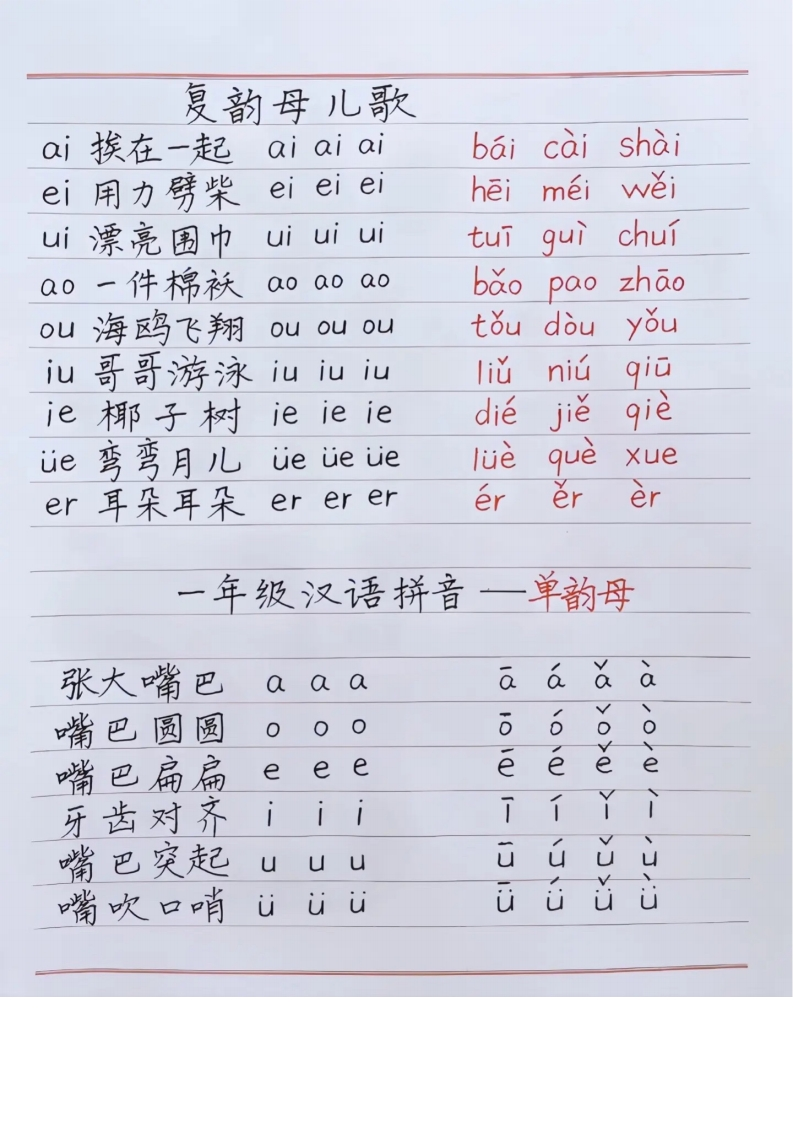 复韵母儿歌
ai 挨在一起 ai ai ai bái cài shài
ei 用力劈柴 ei ei ei hēi méi wěi
ui 漂亮围巾 ui ui ui tuī guì chuí
ao 一件棉袄 ao ao ao bǎo pao zhāo
ou 海鸥飞翔 ou ou ou tǒu dòu yǒu
iu 哥哥游泳 iu iu iu liǔ niú qiū
ie 椰子树 ie ie ie dié jiě qiè
üe 弯弯月儿 üe üe üe lüè què xue
er 耳朵耳朵 er er er ér ěr èr
一年级汉语拼音——单韵母
张大嘴巴 a a a ā á ǎ à
嘴巴圆圆 o o o ō ó ǒ ò
嘴巴扁扁 e e e ē é ě è
牙齿对齐 i i i ī í ǐ ì
嘴巴突起 u u u ū ú ǔ ù
嘴吹口哨 ü ü ü ǖ ǘ ǚ ǜ